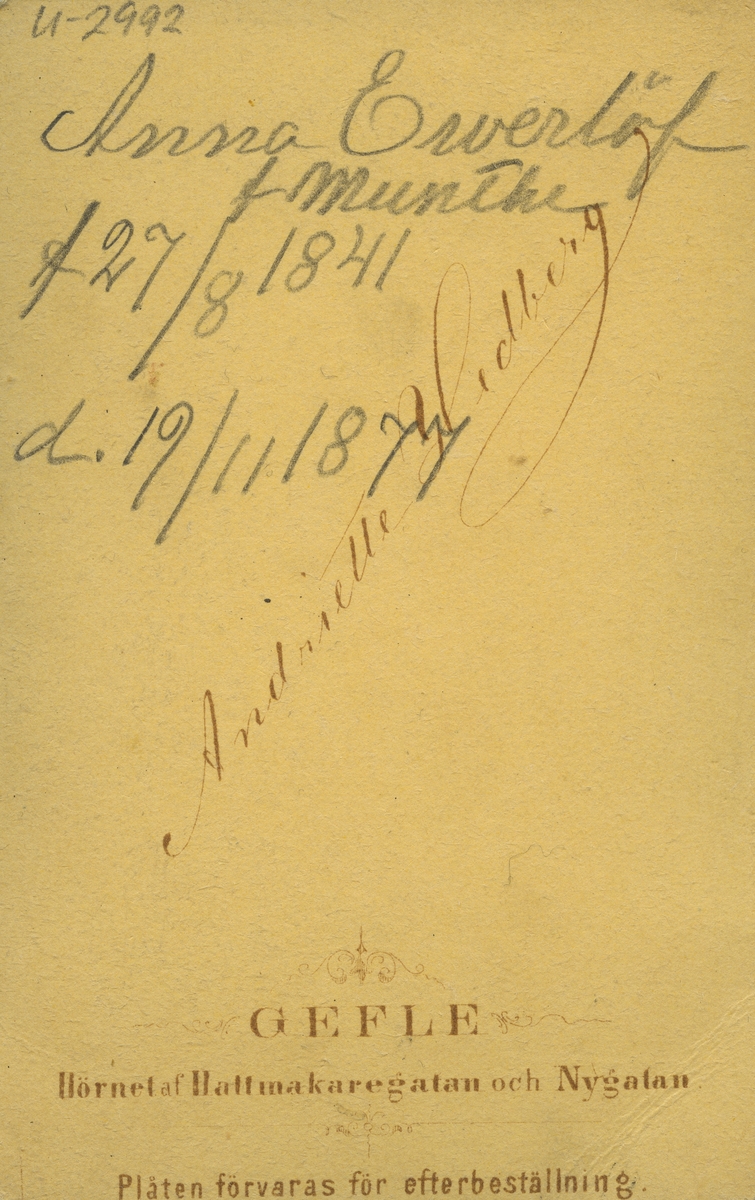 U-2992
Anna Ewerlöf
f Munthe
f 27/8 1841
d. 19/11 1877
Andriette Widberg
GEFLE
Hörnet af Hattmakaregatan och Nygatan.
Plåten förvaras för efterbeställning.